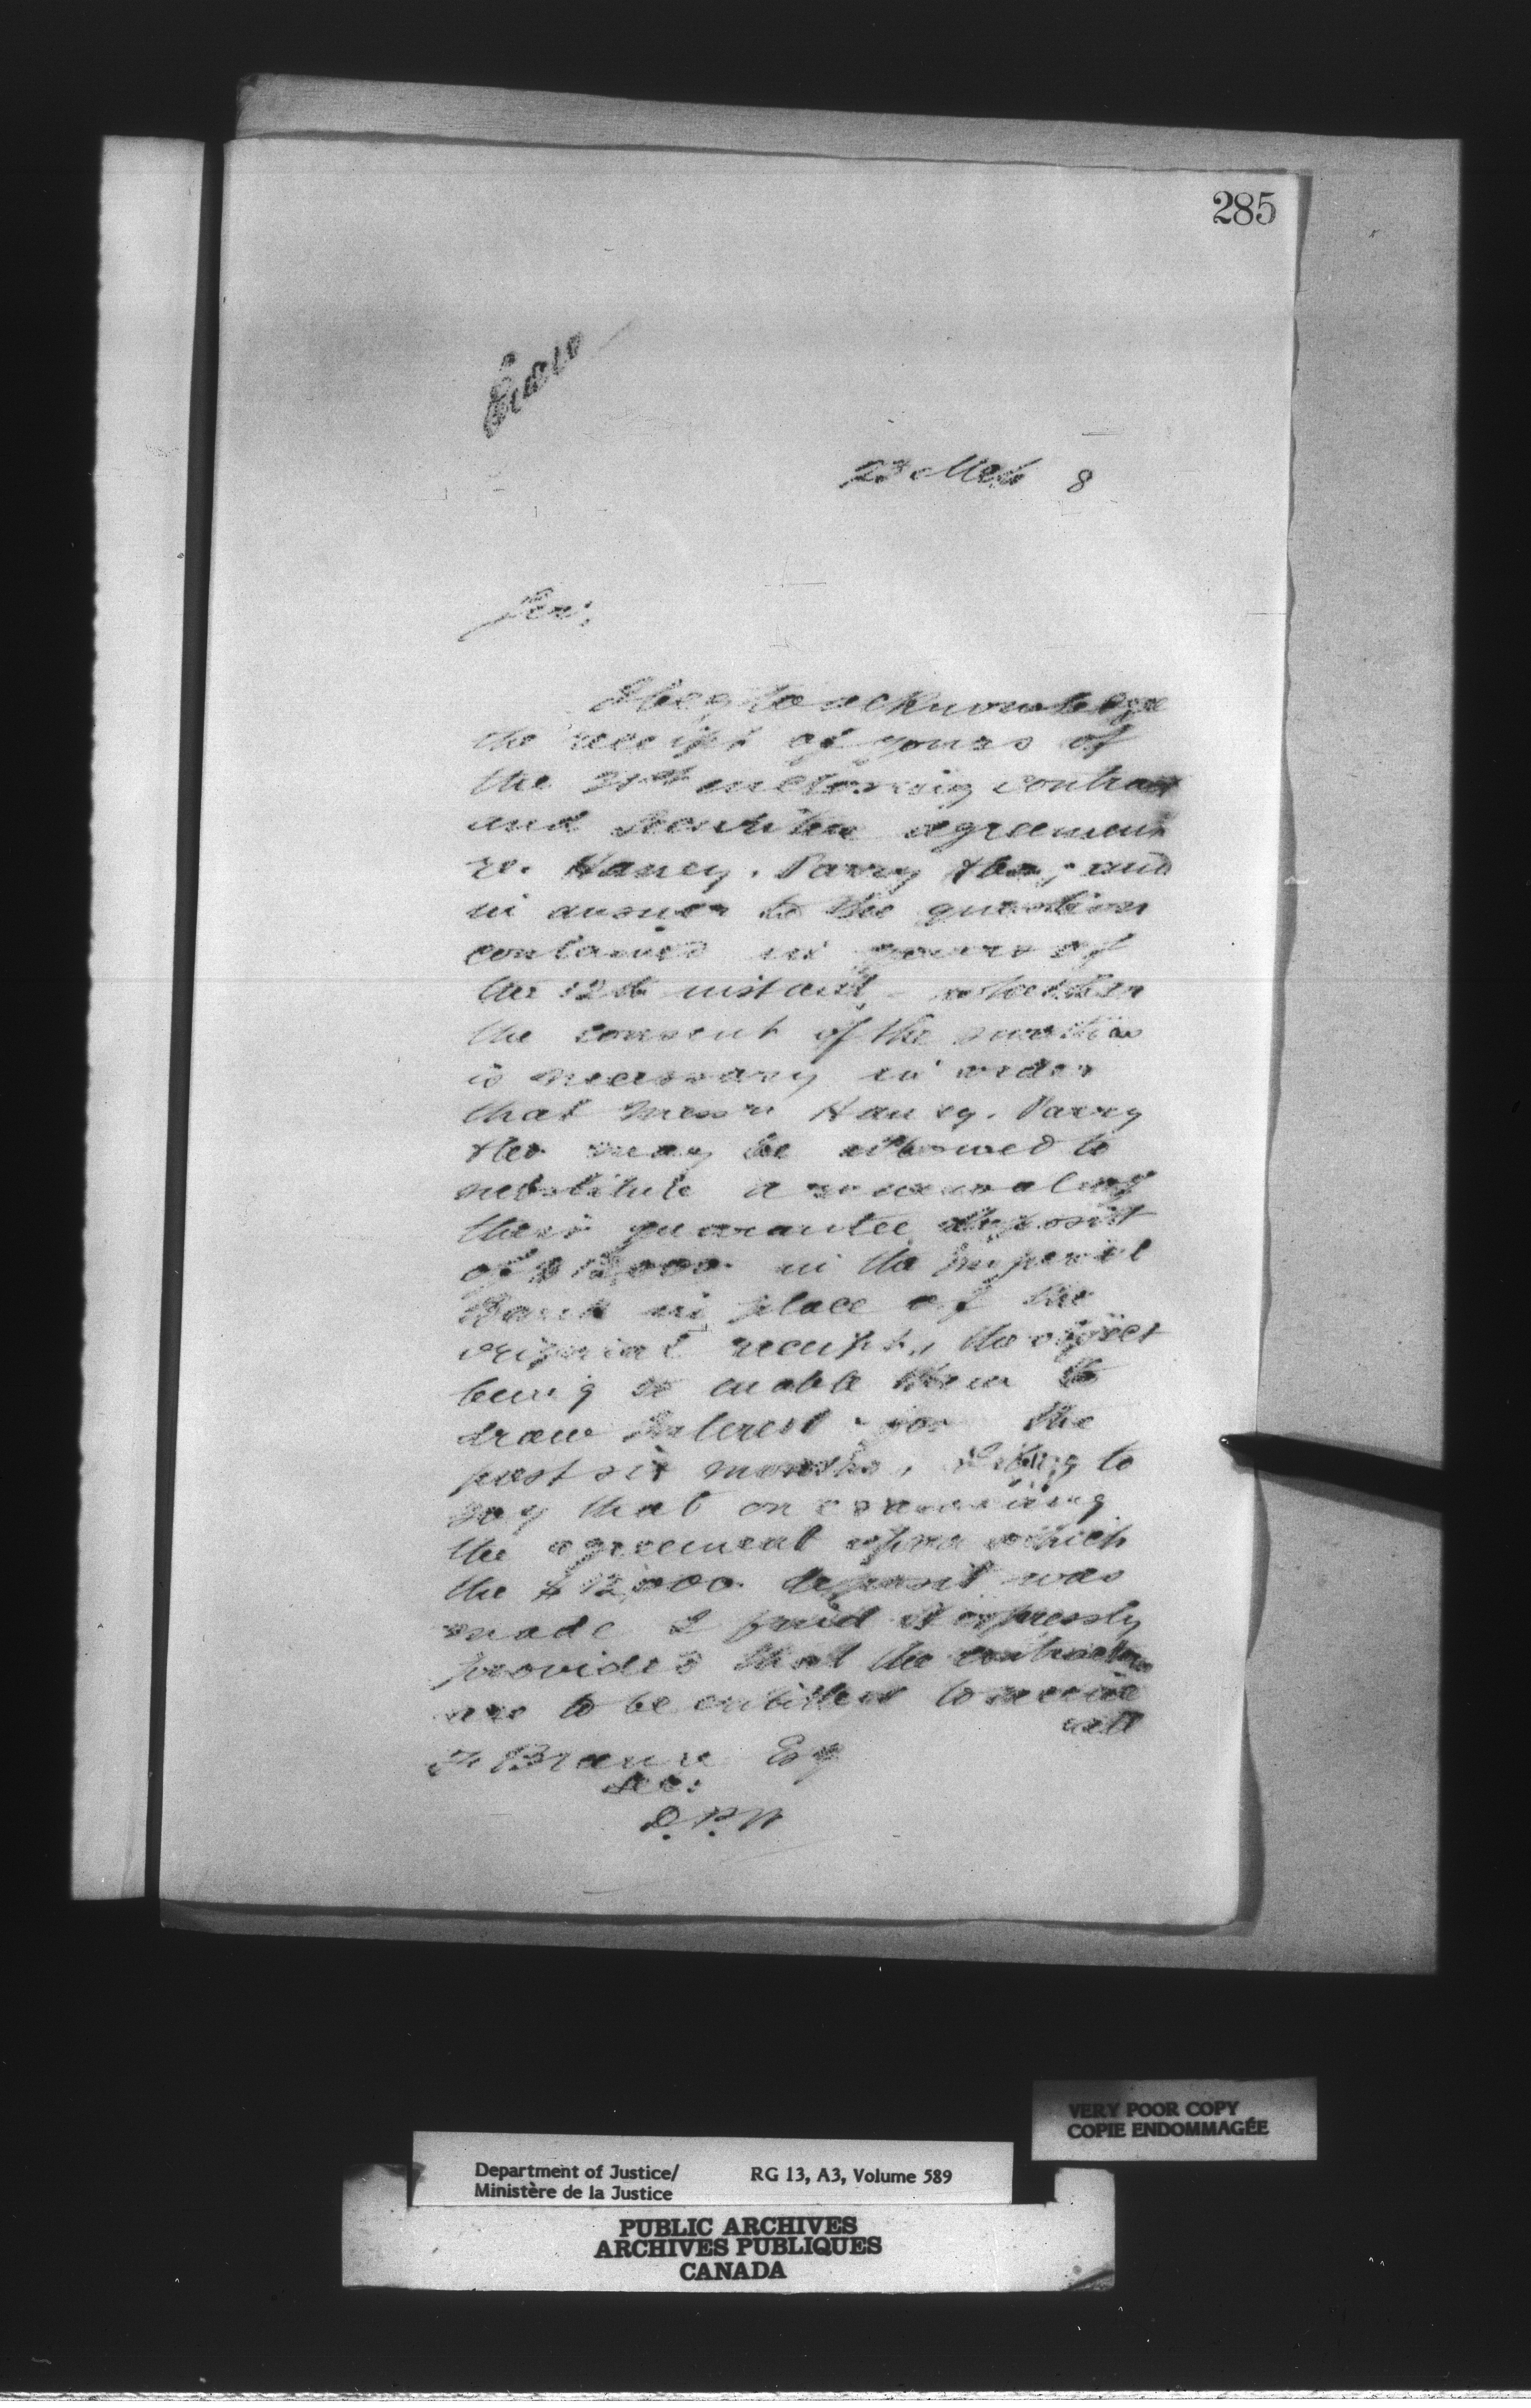 285
23 Mch 8
Sir;
I beg to acknowledge
the receipt of yours of
the 21st enclosing contract
and Securities agreement
re. Haney. Parry & Co; and
in answer to the question
contained in yours of
the 12th instant, - whether
the consent of the sureties
is necessary in order
that Messrs Haney. Parry
& Co may be allowed to
substitute a renewal of
their guarantee deposit
of $12,000. in the Imperial
Bank in place of the
original receipt, the object
being to enable them to
draw Interest for the
past six months, I beg to
say that on examining
the agreement upon which
the $12,000. deposit was
made I find it expressly
provides that the contractors
are to be entitled to receive
all
F Braun Esq
Sec:
D.P.W
VERY POOR COPY
COPIE ENDOMMAGÉE
Department of Justice/ RG 13, A3, Volume 589
Ministère de la Justice
PUBLIC ARCHIVES
ARCHIVES PUBLIQUES
CANADA